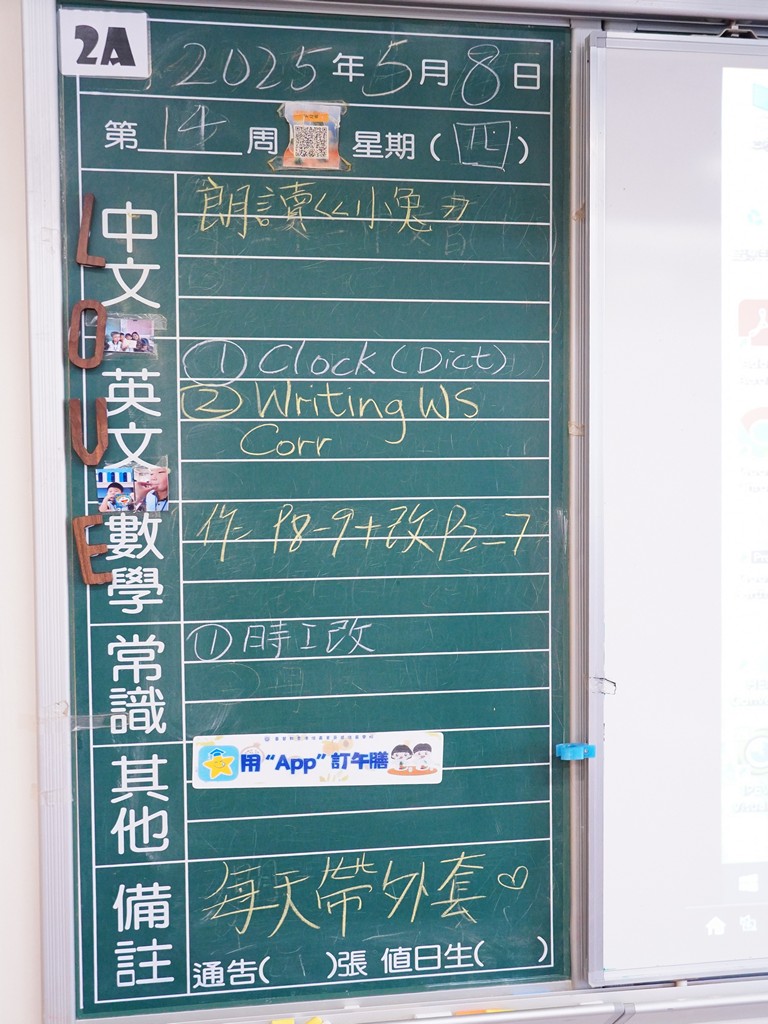 2A
2025年5月8日
第14周 星期(四)
LOVE
中文
朗讀《小兔》
英文
① Clock (Dict)
② Writing WS
Corr
數學
作: P8-9+改P2-7
常識
① 時工改
其他
用“App”訂午膳
備註
每天帶外套♡
通告( )張 值日生( )